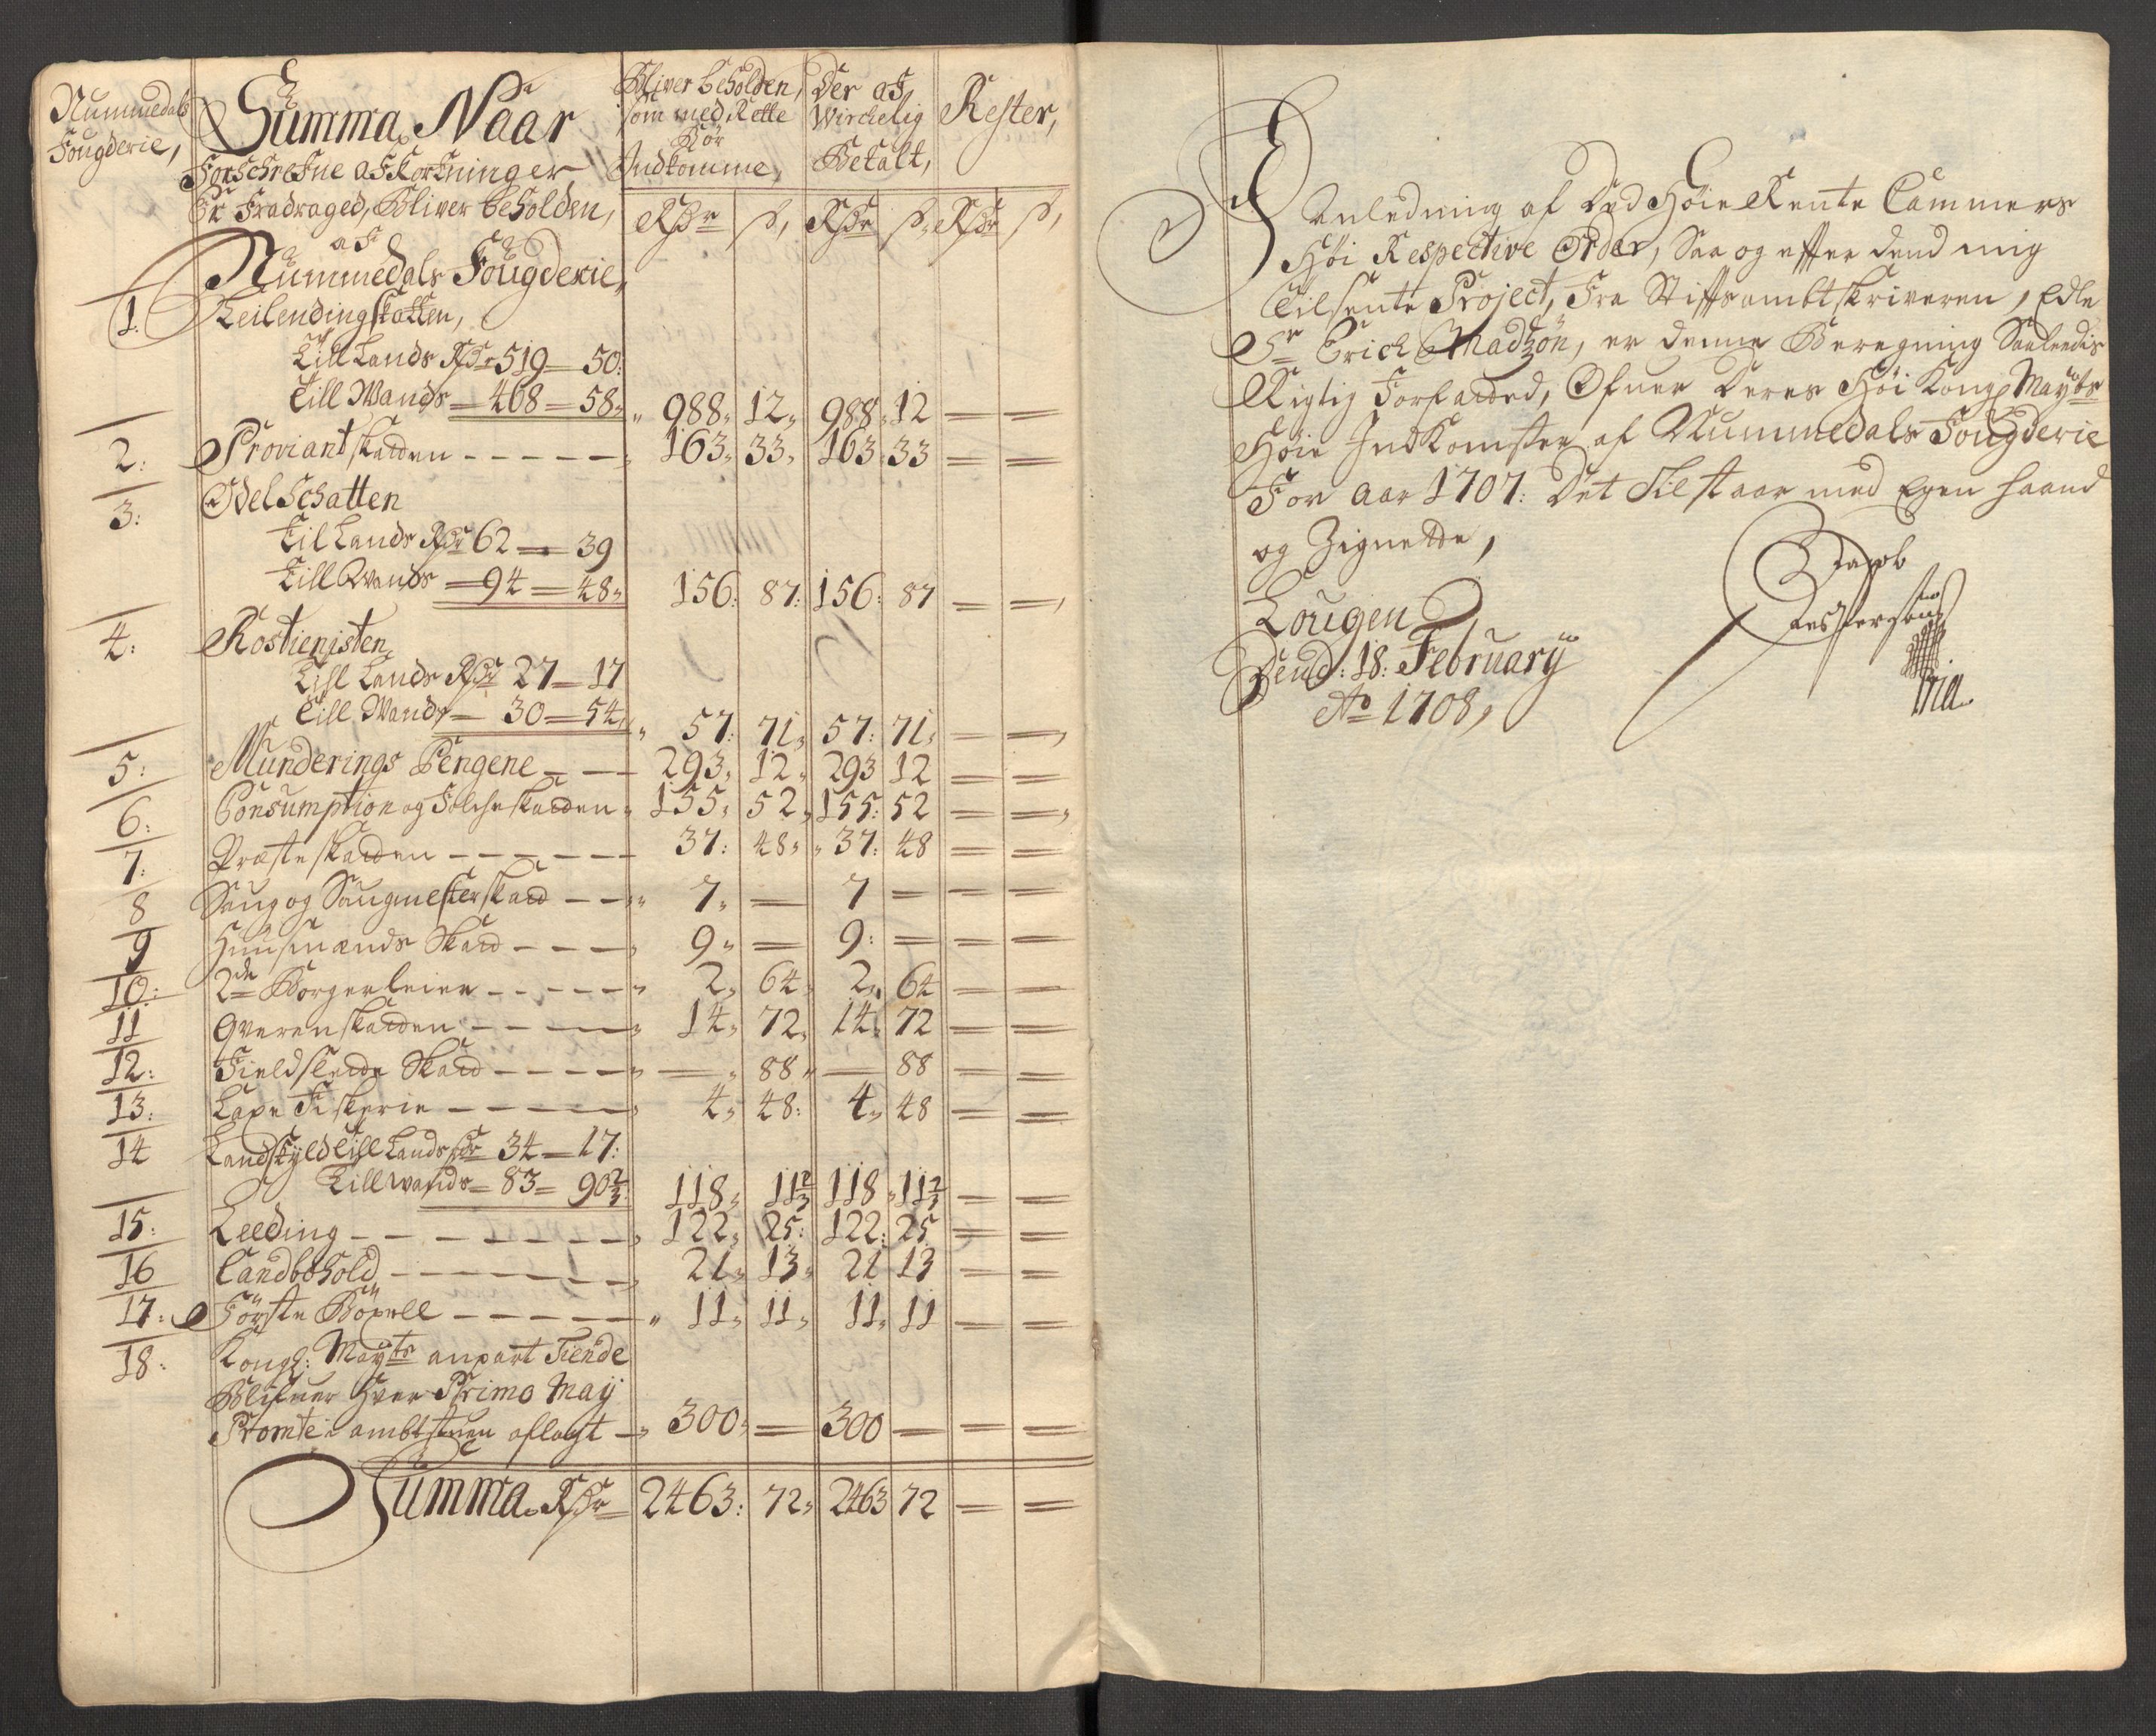 Nummedals
Fougderie,
Summa, Naar
Forschrefne afKortninger
Er Fradraged, Bliver beholden,
af
Nummedals Fougderie,
Bliver beholden,
som med Rette
Bör
Indkomme,
Der af
Wirchelig
Betalt,
Rester,
Rdr ß, Rdr ß, Rdr ß,
1. Leilendingskatten,
Till Lands Rdr 519 — 50:
Till Wands — 468 — 58„ 988„ 12„ 988„ 12 — —
2: Proviantskatten - - - - - 163„ 33„ 163 33 — —
3: Odel Schatten
Til Lands Rdr 62 — 39
Till Wands — 94 — 48„ 156: 87: 156: 87 — —
4: Rostienisten
Till Lands Rdr 27 — 17
Till Wands — 30 — 54„ 57: 71„ 57: 71„ — —
5: Munderings Pengene - - - 293„ 12„ 293 12 — —
6: Consumption og Folcheskatten„ 155„ 52„ 155: 52 — —
7: Præsteskatten - - - - - - 37: 48„ 37: 48 — —
8 Saug og Saugmesterskatt - - - 7„ — 7 — — —
9 Huusmænds Skatt - - - - 9„ — 9: — — —
10: 2de Borgerleier - - - - - 2„ 64„ 2„ 64 — —
11 Qvernskatten - - - - 14„ 72„ 14„ 72 — —
12: Fieldslette Skatt - - - - - — „ 88„ — 88 — —
13: Laxe Fiskerie - - - - - 4„ 48: 4„ 48 — —
14 Landskyld till Lands Rdr 34 — 17:
Till wands — 83 — 90⅔: 118„ 11⅔ 118„ 11⅔ — —
15: Leeding - - - - - - - - 122„ 25: 122: 25 — —
16 Landbohold - - - - - - 21„ 13„ 21 13 — —
17: Förste Böxell - - - - - „ 11„ 11„ 11„ 11 — —
18: Kongl: Mayts anpart Tiende
Blifuer hver Primo Maij
Promte i ambtstuen aflagt — „ 300„ — 300 — — —
Summa. Rdr 2463: 72„ 2463 72 — —
I Anledning af Ded Höie Rente Cammers
Höi Respective Order, Saa og effter dend mig
Tilsente Project, Fra Stifftsambtskriveren, Edle
Sr Erich Madzön, er denne Beregning Saaleedis
Rigtig Forfatted, Ofuer Deres Höi Kongl Mayts
Höie IndKomster af Nummedals Fougderie
For Aar 1707: Det Tilstaar med Egen haand
og Zignette,
Lougen
Dend: 18: February
Ao 1708,
Jacob
Jespersön
mia.